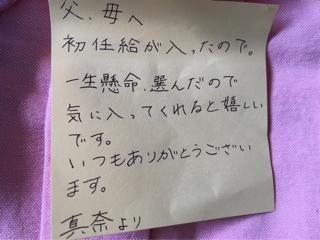 父、母へ
初任給が入ったので。
一生懸命、選んだので
気に入ってくれると嬉しい
です。
いつもありがとうござい
ます。
真奈より